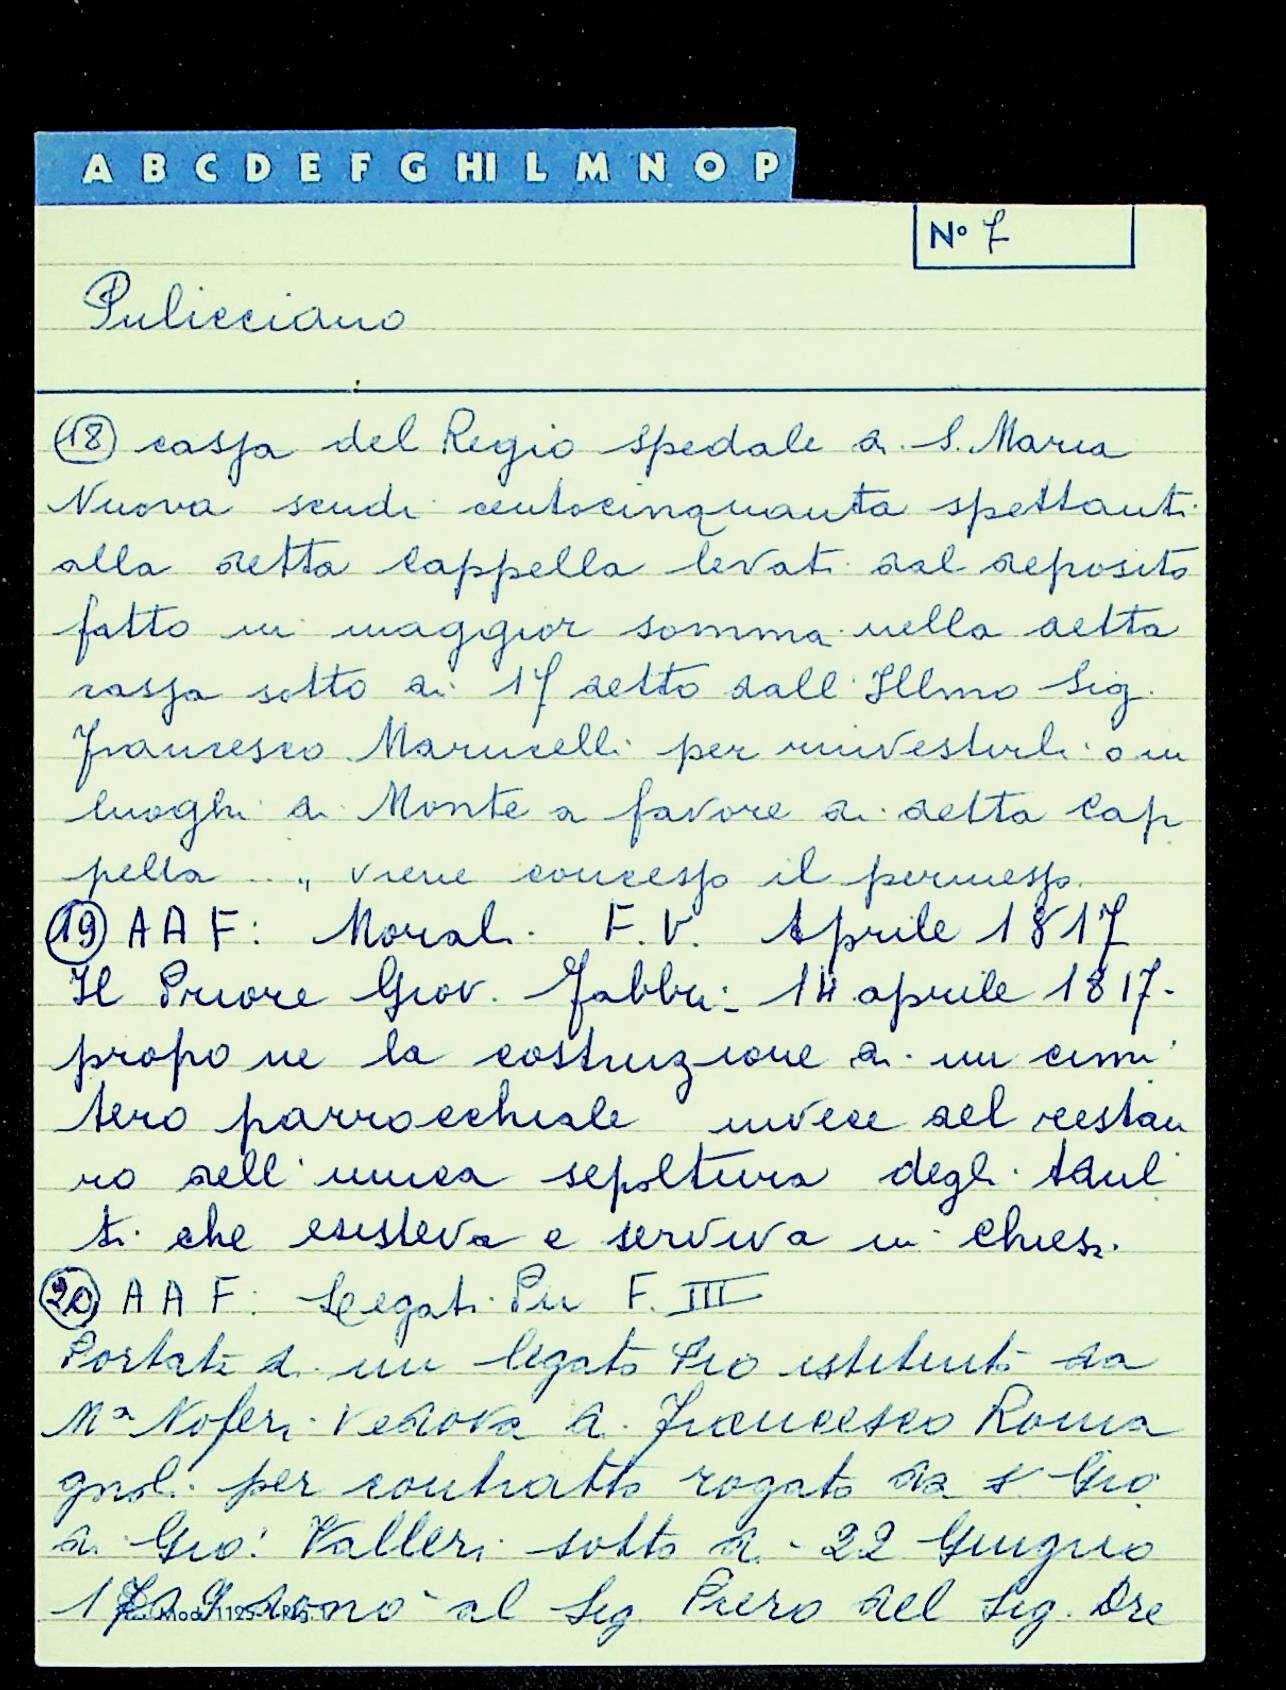 A B C D E F G HI L M N O P
N° 7
Pulicciano
(18) cassa del Regio spedale di S. Maria
Nuova scudi centocinquanta spettanti
alla detta Cappella levati dal deposito
fatto in maggior somma nella detta
cassa sotto di 17 detto dall'Illmo Sig.
Francesco Marucelli per rinvestirli o in
luoghi di Monte a favore di detta Cap
pella ..." viene concesso il permesso.
(19) A A F: Morali. F. V. Aprile 1817
Il Priore Giov. Fabbri: 14 aprile 1817.
propone la costruzione di un cimi
tero parrocchiale invece del restau
ro dell'unica sepoltura degli Adul
ti che esisteva e serviva in Chiesa.
(20) A A F: Legati Pii F. III
Portate di un legato Pio istituito da
Mª Noferi vedova di Francesco Roma
gnoli per contratto rogato da s. Gio
di Gio: Valleri sotto di 22 Giugno
donò al Sig. Piero del Sig. Dre